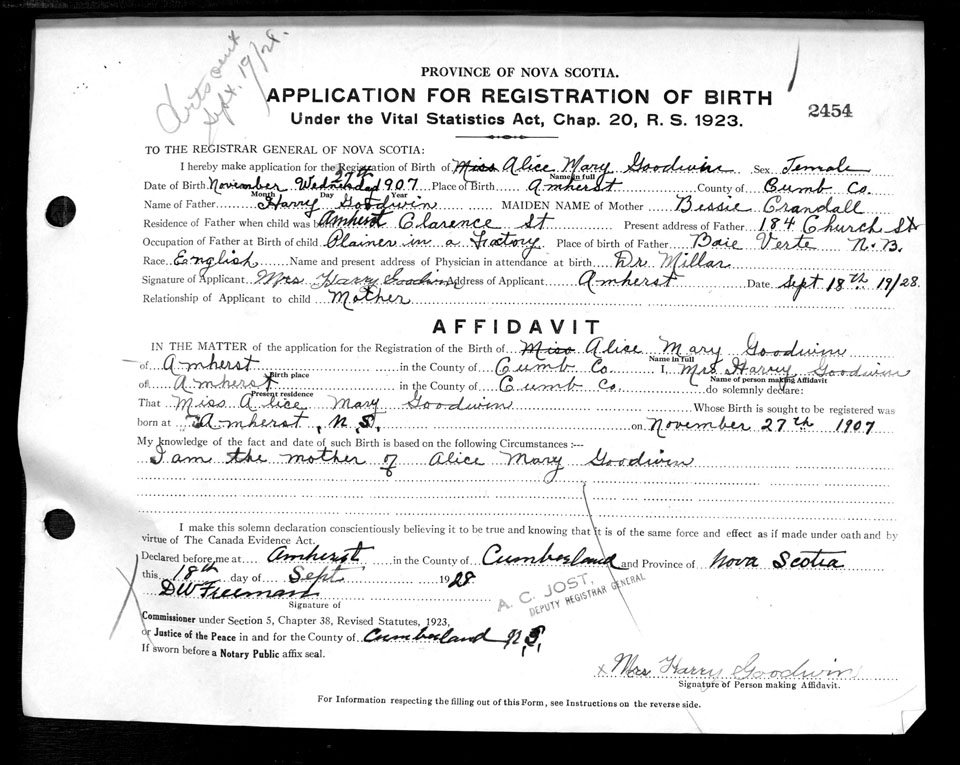 Certs sent
Sept. 19/28.
PROVINCE OF NOVA SCOTIA.
APPLICATION FOR REGISTRATION OF BIRTH
2454
Under the Vital Statistics Act, Chap. 20, R. S. 1923.
TO THE REGISTRAR GENERAL OF NOVA SCOTIA:
I hereby make application for the Registration of Birth of Miss Alice Mary Goodwin Sex Female
Name in full
Date of Birth November Wednesday 27th 1907 Place of Birth Amherst County of Cumb Co.
Month Day Year
Name of Father Harry Goodwin MAIDEN NAME of Mother Bessie Crandall
Residence of Father when child was born Amherst Clarence St Present address of Father 184 Church St
Occupation of Father at Birth of child Plainer in a Factory Place of birth of Father Baie Verte N.B.
Race English Name and present address of Physician in attendance at birth Dr Millar
Signature of Applicant Mrs Harry Goodwin Address of Applicant Amherst Date Sept 18th 19/28.
Relationship of Applicant to child Mother
AFFIDAVIT
IN THE MATTER of the application for the Registration of the Birth of Miss Alice Mary Goodwin
Name in full
of Amherst in the County of Cumb Co. I, Mrs Harry Goodwin
Birth place Name of person making Affidavit
of Amherst in the County of Cumb Co. do solemnly declare:
Present residence
That Miss Alice Mary Goodwin Whose Birth is sought to be registered was
born at Amherst, N.S. on November 27th 1907
My knowledge of the fact and date of such Birth is based on the following Circumstances :--
I am the mother of Alice Mary Goodwin
I make this solemn declaration conscientiously believing it to be true and knowing that it is of the same force and effect as if made under oath and by
virtue of The Canada Evidence Act.
Declared before me at Amherst in the County of Cumberland and Province of Nova Scotia
this 18th day of Sept 1928
A. C. JOST,
DEPUTY REGISTRAR GENERAL
DW Freeman
Signature of
Commissioner under Section 5, Chapter 38, Revised Statutes, 1923,
or Justice of the Peace in and for the County of Cumberland N.S.
If sworn before a Notary Public affix seal.
x Mrs Harry Goodwin
Signature of Person making Affidavit.
For Information respecting the filling out of this Form, see Instructions on the reverse side.